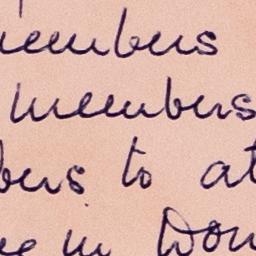 members
members
bers to at
in Don